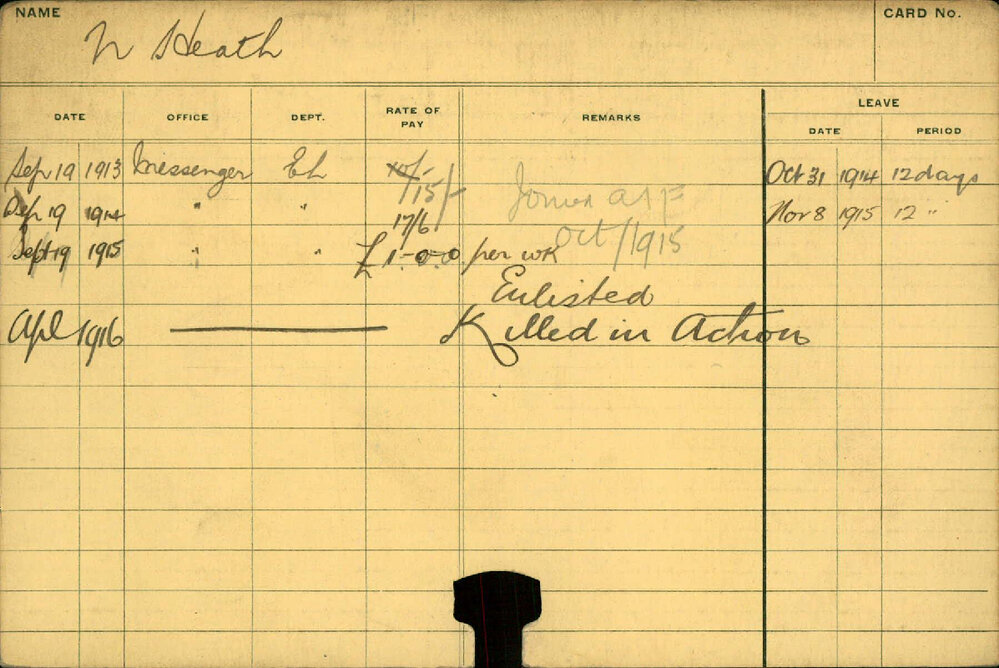 NAME
CARD No.
N Heath
LEAVE
DATE OFFICE DEPT. RATE OF PAY REMARKS DATE PERIOD
Sep 19 1913 Messenger EL 10/- Oct 31 1914 12 days
/15/- Joined AIF
Sep 19 1914 " " 17/6 Nov 8 1915 12 "
Oct/1915
Sept 19 1915 " " £1-0-0 per wk
Enlisted
Apl 1916 Killed in Action